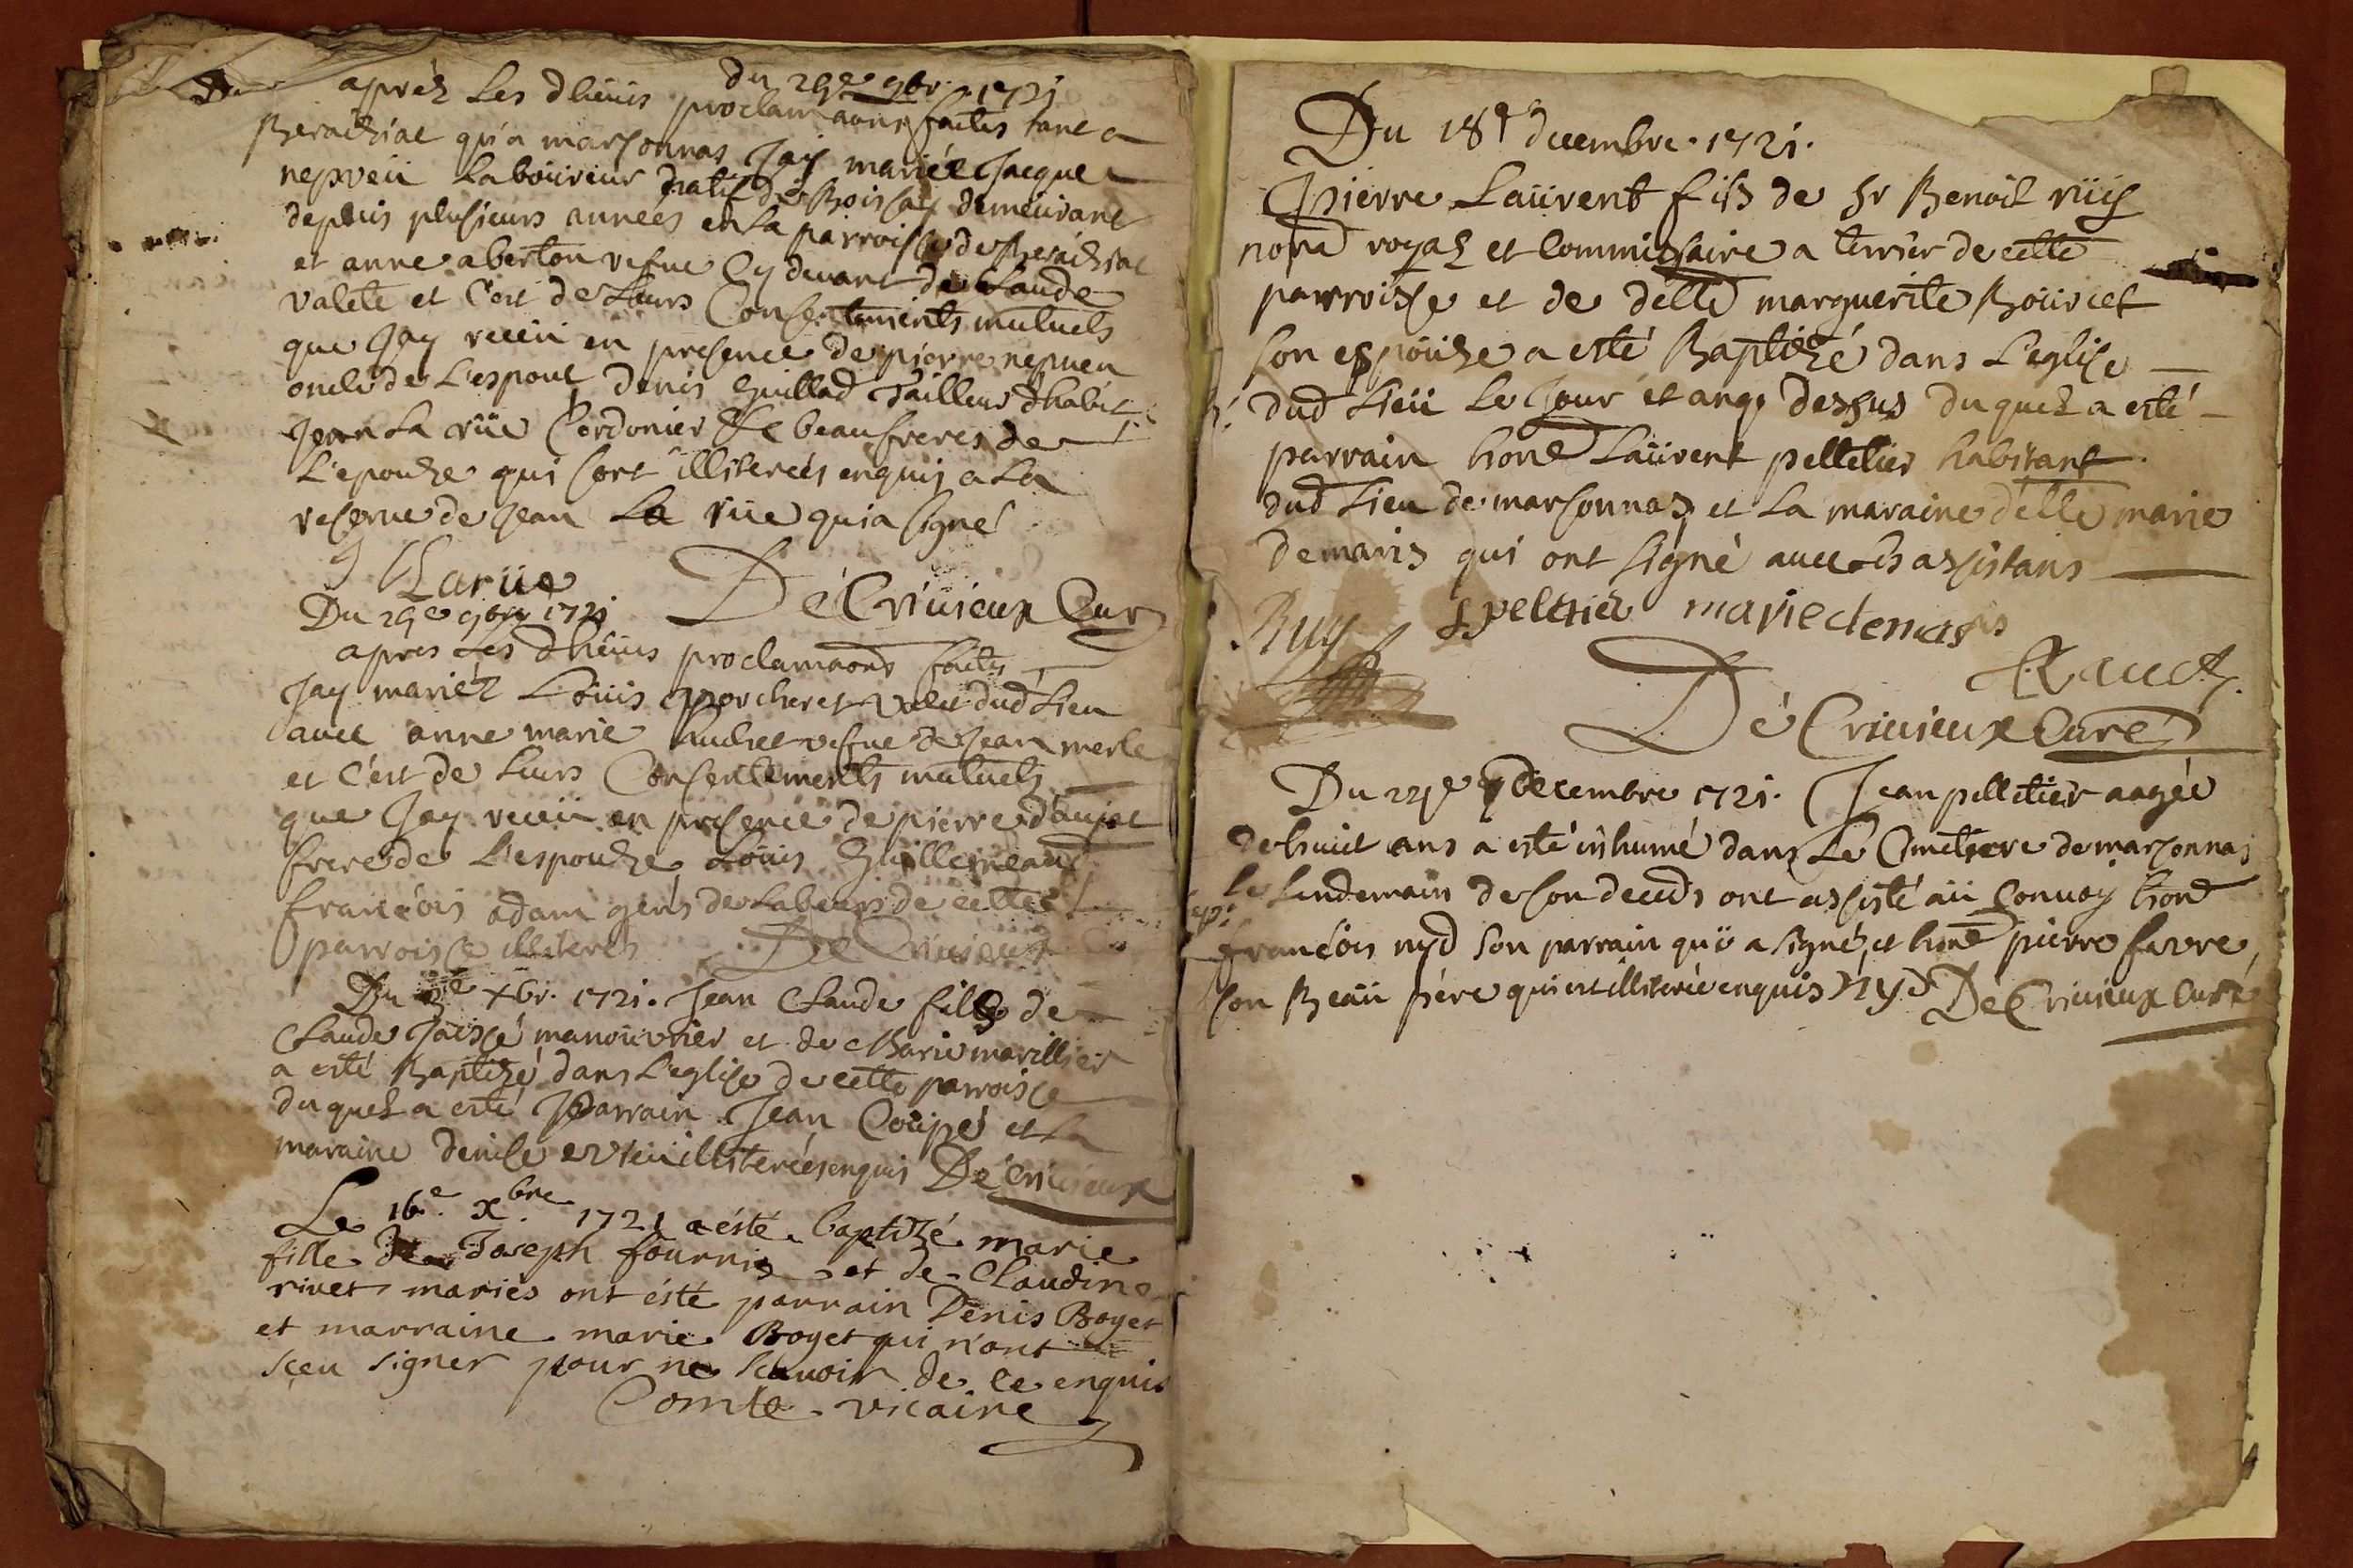 du 29e 9br. 1721
apréz Les dheües proclamaõns faites tant a
Beraiziat qu'a marsonnas Jay mariéz Jacque
nepveü Laboüreur natif de Boissay demeurant
depuis plusieurs années en La parroisse de Beraiziat
et anne aberton vefve Cy devant de Claude
valete et C'est de Leurs Consentements mutuels
que Jay receü en presence de pierre nepveu
oncle de L'espoux denis Guillod Tailleur dhabit
Jean La rüe Cordonier beaufreres de
L'epouze qui sont illiterées enquis a La
reserve de Jean La rüe qui a signé
J Larüe
DéCrivieux Curé
Du 29e 9br 1721
apres Les dheües proclamaons faites
Jay mariéz Loüis porcheret valet dud Lieu
avec anne marie vefve de Jean merle
et C'est de Leurs Consentements mutuels
que Jay receü en presence de pierre daujat
frere de L'espouze Loüis Guillemeaud
françois adam gens de Labeurs de cette
parroisse illiterés DéCrivieux
Du 3e xbr. 1721. Jean Claude fils de
Claude Jaissé manoüvrier et de Marie marillier
a esté Baptizé dans L'eglise de cette parroisse
duquel a esté Parrain Jean Coüpé et La
maraine denise illiterées enquis DéCrivieux
Le 16e. xbre 1721 a été baptizé marie
fille de Joseph fournis et de Claudine
rivet mariés ont été parrain Denis Boyet
et marraine marie Boyet qui n'ont
sçeu signer pour ne sçavoir de ce enquis
Comte vicaire
Du 18e decembre 1721.
Pierre Laürent fils de Sr Benoit rüy
nore royal et Commissaire a terrier de cette
parroisse et de delle marguerite Boürcet
son espoüze a esté Baptizé dans L'eglise
dud Lieü Le Jour et an dessus duquel a esté
parrain hone Laürent pelletier habitant
dud Lieu de marsonnas et La maraine delle marie
demaris qui ont signé avec les assistans
Ruy L pelletier marie demaris
DéCrivieux Curé
Du 22e decembre 1721. Jean pelletier aagée
de huict ans a esté inhumé dans Le Cimetiere de marsonnas
Le Lendemain de son deceds ont assisté aü Convoy hone
françois nyd son parrain quï a signé, et hone pierre favre,
son Beaü pére qui est illiterée enquis Nyd DéCrivieux Curé